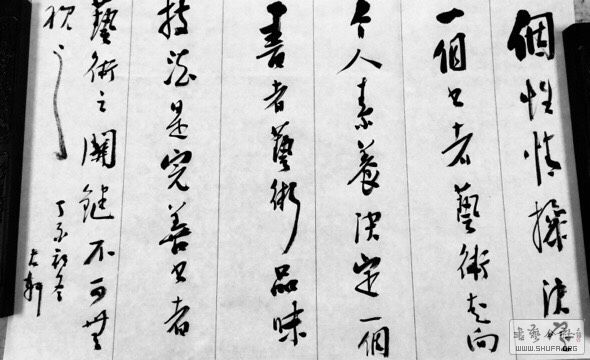 個性情操決定
一個书者藝術走向
个人素養決定一個
書者藝術品味
技法是完善书者
藝術之關鍵不可無
視之
丁亥初冬
WWW.SHUFA.ORG